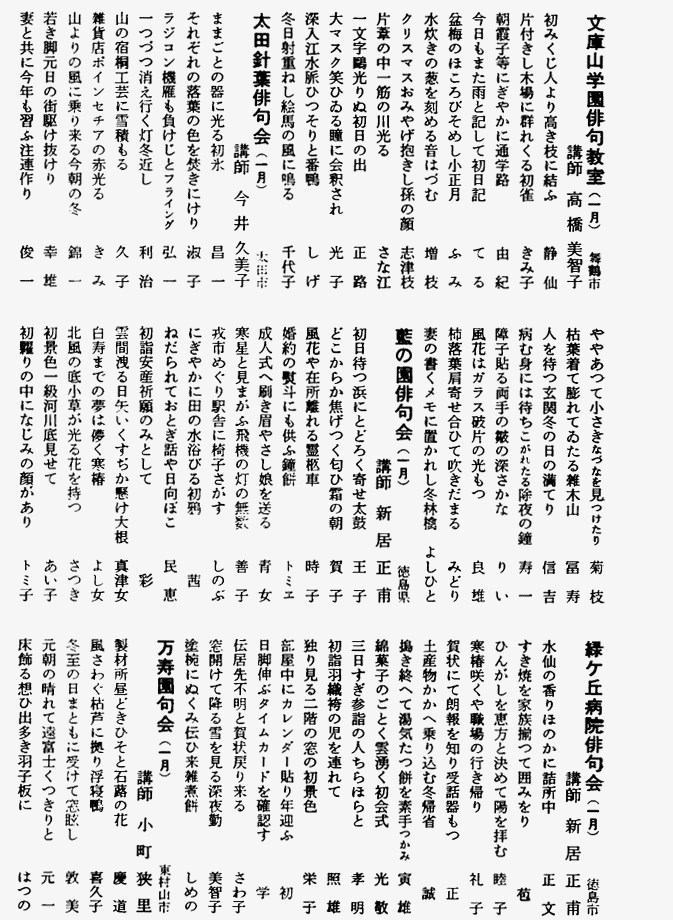 文庫山学園俳句教室（一月） 舞鶴市
講師 高橋 美智子
初みくじ人より高き枝に結ふ 静仙
片付きし木場に群れくる初雀 きみ子
朝霞子等にぎやかに通学路 由紀
今日もまた雨と記して初日記 てる
盆梅のほころびそめし小正月 ふみ
水炊きの葱を刻める音はづむ 増枝
クリスマスおみやげ抱きし孫の顔 志津枝
片葦の中一筋の川光る さな江
一文字鷗光りぬ初日の出 正路
大マスク笑ひゐる瞳に会釈され 光子
深入江水脈ひつそりと番鴨 しげ
冬日射重ねし絵馬の風に鳴る 千代子
太田針葉俳句会（一月） 太田市
講師 今井 久美子
ままごとの器に光る初氷 昌一
それぞれの落葉の色を焚きにけり 淑子
ラジコン機雁も負けじとフライング 弘一
一つづつ消え行く灯冬近し 利治
山の宿桐工芸に雪積もる 久子
雑貨店ポインセチアの赤光る きみ
山よりの風に乗り来る今朝の冬 錦一
若き脚元日の街駆け抜けり 幸雄
妻と共に今年も習ふ注連作り 俊一
ややあつて小さきなづなを見つけたり 菊枝
枯葉着て膨れてゐたる雑木山 冨寿
人を待つ玄関冬の日の満てり 信吉
病む身には待ちこがれたる除夜の鐘 寿一
障子貼る両手の皺の深さかな りい
風花はガラス破片の光もつ 良雄
柿落葉肩寄せ合ひて吹きだまる みどり
妻の書くメモに置かれし冬林檎 よしひと
藍の園俳句会（一月） 徳島県
講師 新居 正甫
初日待つ浜にとどろく寄せ太鼓 王子
どこからか焦げつく匂ひ霜の朝 賀子
風花や在所離れる霊柩車 時子
婚約の熨斗にも供ふ鐘餅 トミエ
成人式へ刷き眉やさし娘を送る 青女
寒星と見まがふ飛機の灯の無数 善子
戎市めぐり駅舎に椅子さがす しのぶ
にぎやかに田の水浴びる初鴉 茜
ねだられておとぎ話や日向ぼこ 民恵
初詣安産祈願のみとして 彩
雲間洩る日矢いくすぢか懸け大根 真津女
白寿までの夢は儚く寒椿 よし女
北風の底小草が光る花を持つ さつき
初景色一級河川底見せて あい子
初糶りの中になじみの顔があり トミ子
緑ケ丘病院俳句会（一月） 徳島市
講師 新居 正甫
水仙の香りほのかに詰所中 正文
すき焼を家族揃つて囲みをり 苞
ひんがしを恵方と決めて陽を拝む 睦子
寒椿咲くや職場の行き帰り 礼子
賀状にて朗報を知り受話器もつ 正
土産物かかへ乗り込む冬帰省 誠
搗き終へて湯気たつ餅を素手つかみ 寅雄
綿菓子のごとく雲湧く初会式 光敏
三日すぎ参詣の人ちらほらと 孝明
初詣羽織袴の児を連れて 照雄
独り見る二階の窓の初景色 栄子
部屋中にカレンダー貼り年迎ふ 初
日脚伸ぶタイムカードを確認す 学
伝居先不明と賀状戻り来る さわ子
窓開けて降る雪を見る深夜勤 美智子
塗椀にぬくみ伝ひ来雑煮餅 しめの
万寿園句会（一月） 東村山市
講師 小町 狭里
製材所昼どきひそと石蕗の花 慶道
風さわぐ枯芦に拠り浮寝鴨 喜久子
冬至の日まともに受けて窓眩し 敦美
元朝の晴れて遠富士くつきりと 元一
床飾る想ひ出多き羽子板に はつの